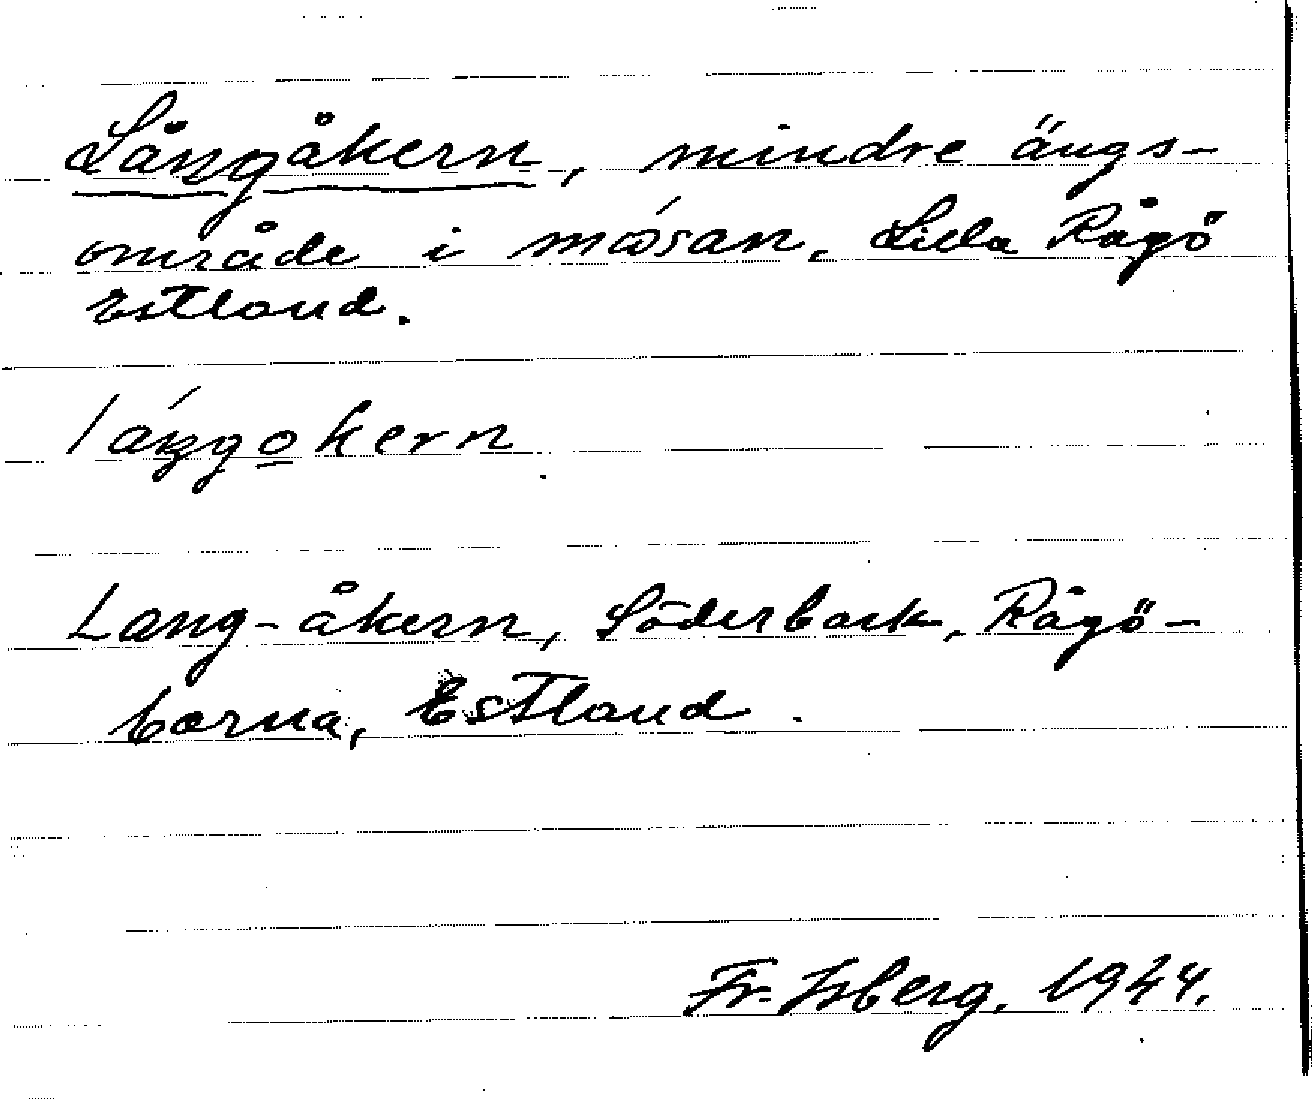 Långåkern, mindre ängs-
område i mósan, Lilla Rågö
Estland.
láŋgo̲kern
Lang-åkern, Söderback, Rågö-
barna, Estland.
Fr. Isberg, 1944.